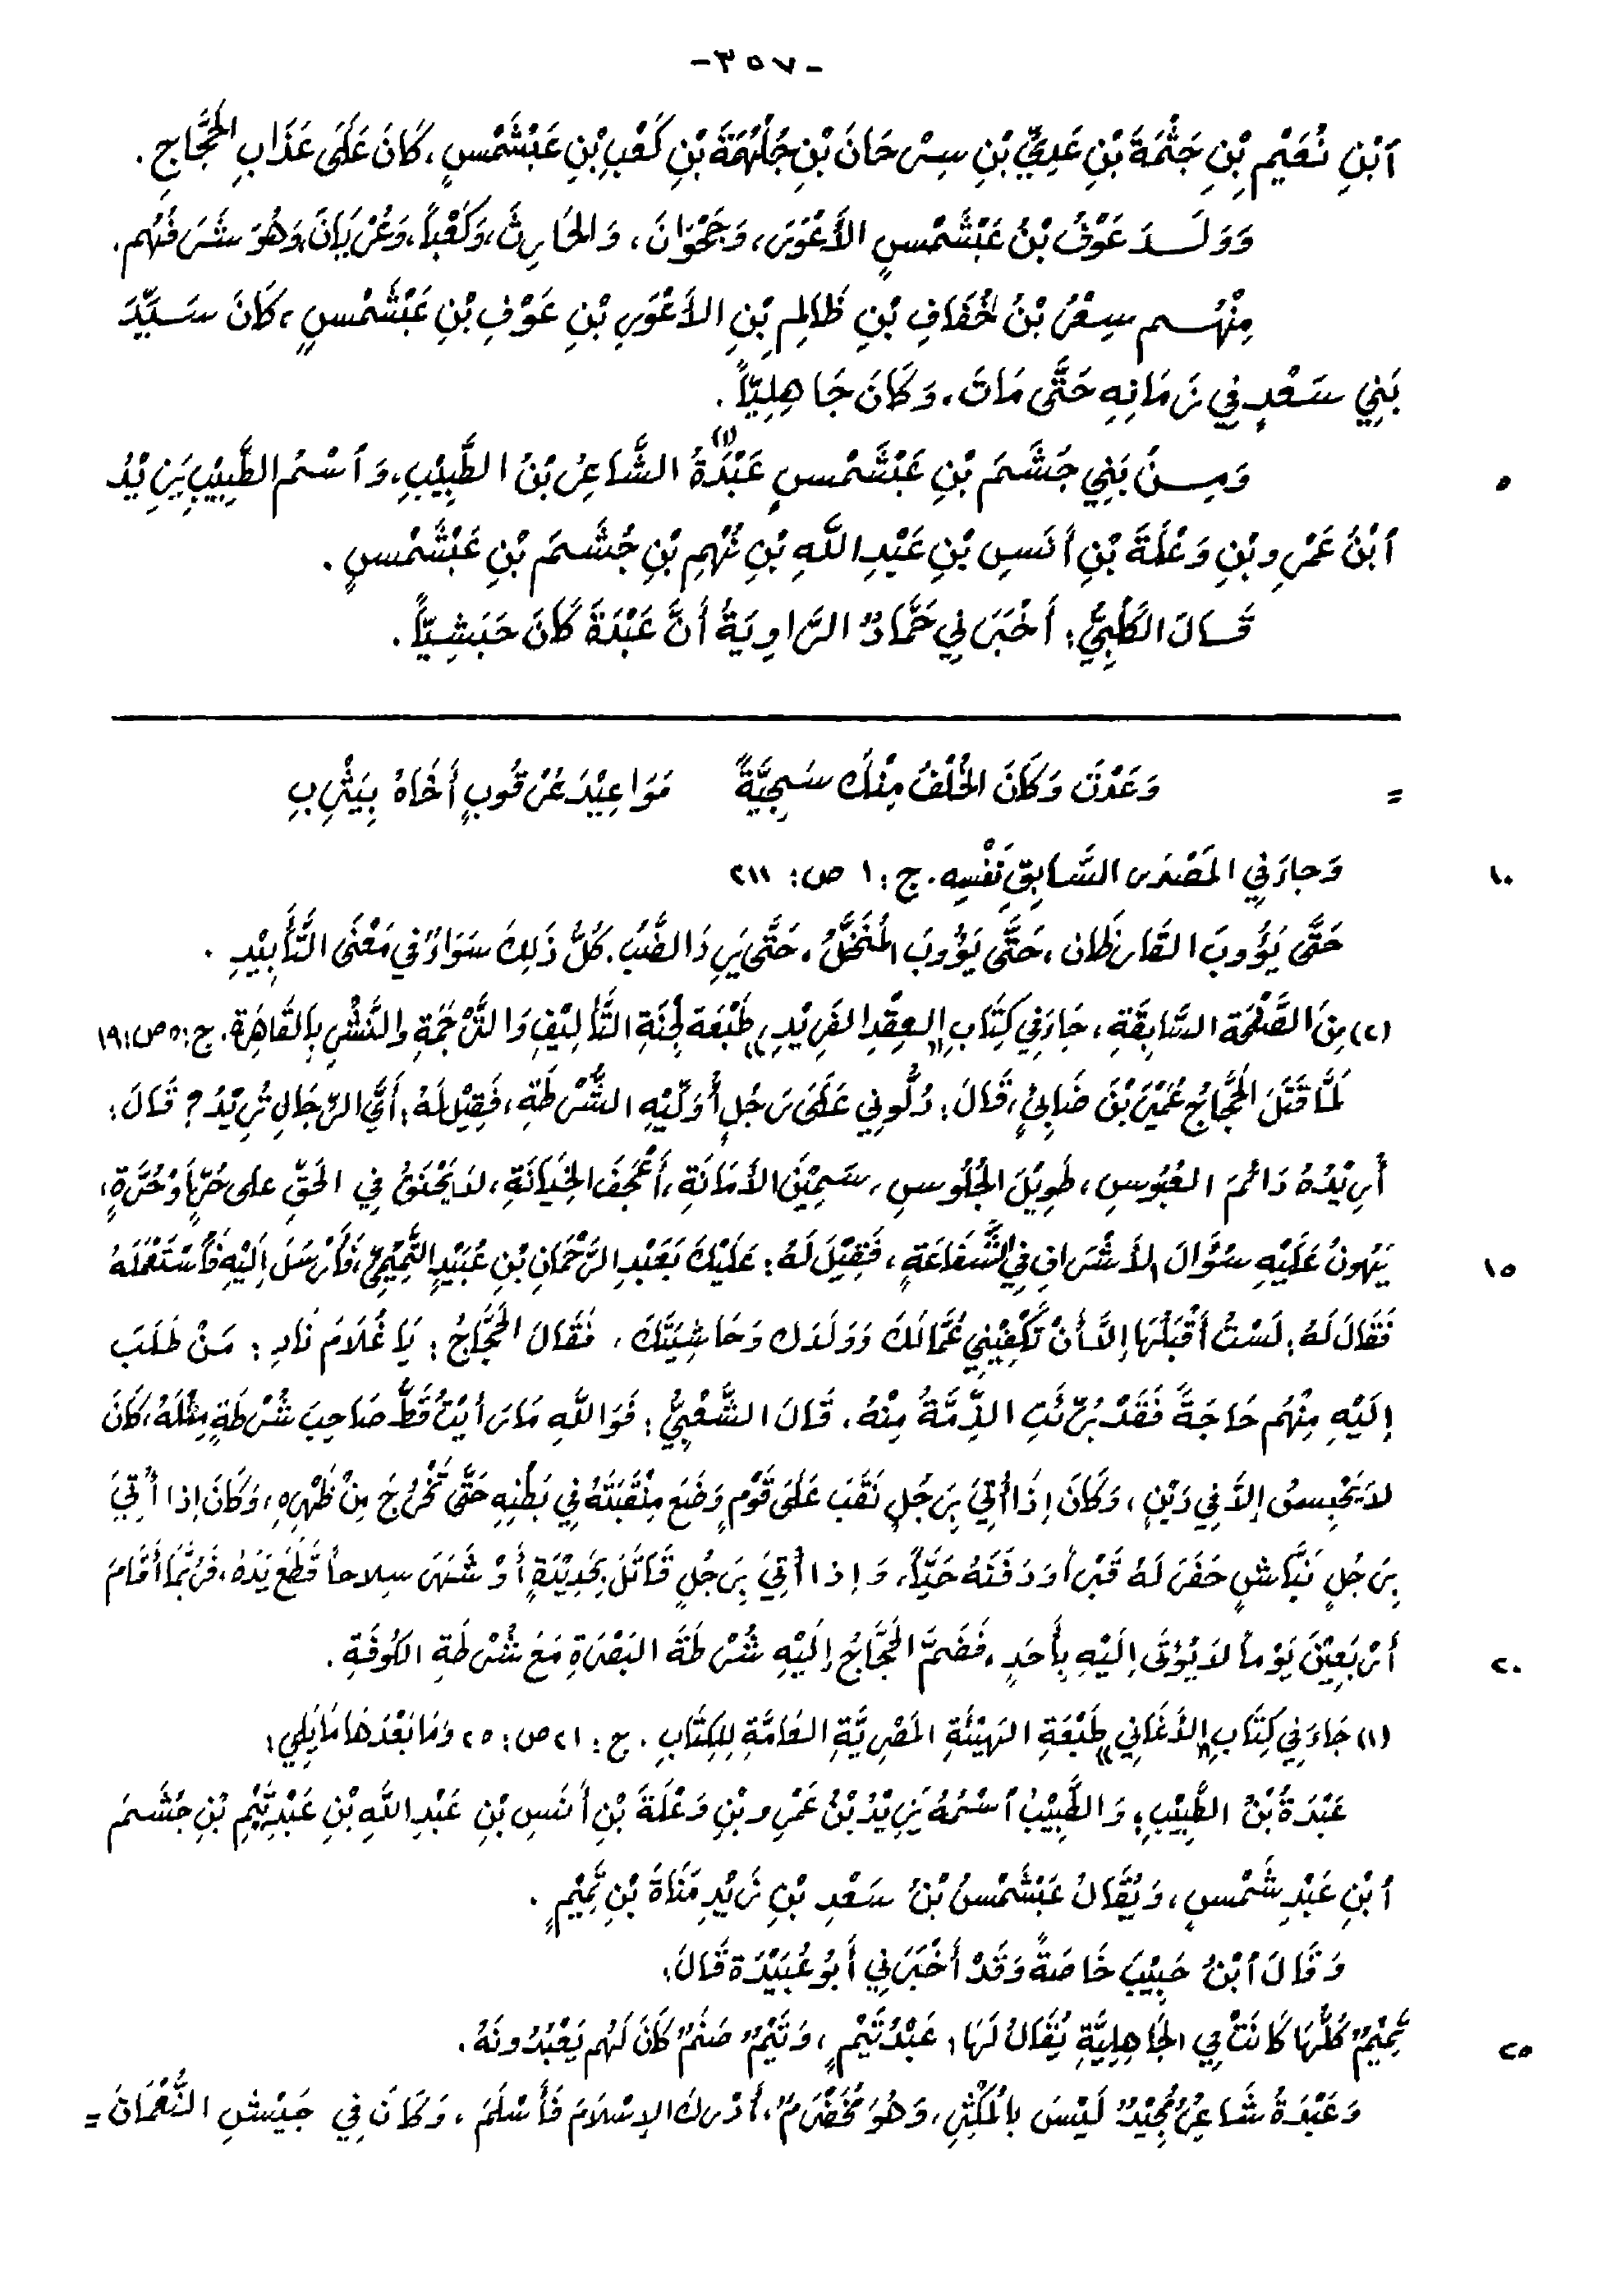 -٣٥٧-
ٱبْنِ نُعَيْمِ بْنِ جَثْمَةَ بْنِ عَدِيِّ بْنِ سِرْحَانَ بْنِ جُلْهُمَةَ بْنِ كَعْبِ بْنِ عَبْشَمْسٍ، كَانَ عَلَى عَذَابِ الحَجَّاجِ.
وَوَلَدَ عَوْفُ بْنُ عَبْشَمْسٍ الأَعْوَرَ، وَجَحْوَانَ، وَالحَارِثَ، وَكَعْباً، وَعُرْيَانَ، وَهُوَ شَرَفُهُم.
مِنْهُم سِعْرُ بْنُ خُفَافِ بْنِ ظَالِمِ بْنِ الأَعْوَرِ بْنِ عَوْفِ بْنِ عَبْشَمْسٍ، كَانَ سَيِّدَ
بَنِي سَعْدٍ فِي زَمَانِهِ حَتَّى مَاتَ، وَكَانَ جَاهِلِيّاً.
وَمِنْ بَنِي جُشَمَ بْنِ عَبْشَمْسٍ عَبْدَةُ (١) الشَّاعِرُ بْنُ الطَّبِيْبِ، وَٱسْمُ الطَّبِيْبِ يَزِيْدُ ٥
ٱبْنُ عَمْرِو بْنِ وَعْلَةَ بْنِ أَنَسِ بْنِ عَبْدِ اللَّهِ بْنِ نُهْمِ بْنِ جُشَمَ بْنِ عَبْشَمْسٍ.
قَالَ الكَلْبِيُّ: أَخْبَرَنِي حَمَّادٌ الرَّاوِيَةُ أَنَّ عَبْدَةَ كَانَ حَبَشِيّاً.
= وَعَدْتَ وَكَانَ الخُلْفُ مِنْكَ سَجِيَّةً مَوَاعِيْدَ عُرْقُوبٍ أَخَاهُ بِيَثْرِبِ
وَجاءَ فِي المَصْدَرِ السَّابِقِ نَفْسِهِ. ج: ١ ص: ٢١١ ١٠
حَتَّى يَؤُوبَ القَارِظَان، حَتَّى يَؤُوبَ المُنَخَّلُ، حَتَّى يَرِدَ الضَّبُّ. كُلُّ ذَلِكَ سَوَاءٌ فِي مَعْنَى التَّأْبِيْدِ.
(٢) مِنَ الصَّفْحَة السَّابِقَةِ، جَاءَ فِي كِتَابِ «العِقْدِ الفَرِيْدِ» طَبْعَة لَجْنَةِ التَّأْلِيْفِ وَالتَّرْجَمَةِ والنَّشْرِ بِالقَاهِرَة. ج: ٥ ص: ١٩
لَمَّا قَتَلَ الحَجَّاجُ عُمَيْرَ بْنَ ضَابِئٍ، قَالَ: دُلُّونِي عَلَى رَجُلٍ أُوَلِّيْهِ الشُّرْطَةِ، فَقِيْلَ لَهُ: أَيَّ الرِّجَالِ تُرِيْدُ؟ قَالَ:
أُرِيْدُهُ دَائمَ العُبُوسِ، طَوِيْلَ الجُلُوسِ، سَمِيْنَ الأَمَانَةِ، أَعْجَفَ الخِيَانَةِ، لاَ يَحْنَقُ فِي الحَقِّ على حُرٍّ أَوْ حُرَّةٍ،
يَهُونُ عَلَيْهِ سُؤَالَ الأَشْرَافِ فِي الشَّفَاعَةِ، فَقِيْلَ لَهُ: عَلَيْكَ بِعَبْدِ الرَّحْمَانِ بْنِ عُبَيْدٍ التَّمِيْمِيِّ، فَأَرْسَلَ إِلَيْهِ فَاسْتَعْمَلَهُ ١٥
فَقَالَ لَهُ: لَسْتُ أَقْبَلُهَا إِلاَّ أَنْ تَكْفِيْنِي عُمَّالَكَ وَوَلَدَك وَحَاشِيَتَكَ. فَقَالَ الحَجَّاجُ: يَا غُلاَمَ نَادِ: مَنْ طَلَبَ
إِلَيْهِ مِنْهُم حَاجَةً فَقَدْ بُرِّئَتِ الذِّمَّةُ مِنْهُ. قَالَ الشَّعْبِيُّ: فَوَاللَّهِ مَا رَأَيْتُ قَطُّ صَاحِبَ شُرْطَةٍ مِثْلَهُ، كَانَ
لاَ يَحْبِسُ إِلاَّ فِي دَيْنٍ، وَكَانَ إِذَا أُتِيَ بِرَجُلٍ نَقَبَ عَلَى قَوْمٍ وَضَعَ مِنْقَبَتَهُ فِي بَطْنِهِ حَتَّى تَخْرُجَ مِنْ ظَهْرِهِ، وَكَانَ إِذا أُتِيَ
بِرَجُلٍ نَبَّاشٍ حَفَرَ لَهُ قَبْراً وَدَفَنَهُ حَيّاً، وَإِذا أُتِيَ بِرَجُلٍ قَاتَلَ بِحَدِيْدَةٍ أَوْ شَهَرَ سِلاحاً قَطَعَ يَدَهُ، فَرُبَّمَا أَقَامَ
أَرْبَعِيْنَ يَوْماً لاَ يُؤْتَى إِلَيْهِ بِأَحَدٍ، فَضَمَّ الحَجَّاجُ إِلَيْهِ شُرْطَةَ البَصْرَةِ مَعَ شُرْطَةِ الكُوفَةِ. ٢٠
(١) جَاءَ فِي كِتَابِ «الأَغَانِي» طَبْعَةِ الهَيْئَةِ المَصْرِيَّةِ العَامَّةِ لِلكِتَابِ. ج: ٢١ ص: ٢٥ وَمَا بَعْدَهَا مَا يَلِي:
عَبْدَةُ بْنُ الطَّبِيْبِ، وَالطَّبِيْبُ ٱسْمُهُ يَزِيْدُ بْنُ عَمْرِو بْنِ وَعْلَةَ بْنِ أَنَسِ بْنِ عَبْدِ اللَّهِ بْنِ عَبْدِ تَيْمِ بْنِ جُشَمَ
ٱبْنِ عَبْدِ شَمْسٍ، وَيُقَالُ عَبْشَمْسُ بْنُ سَعْدِ بْنِ زَيْدِ مَنَاةَ بْنِ تَمِيْمٍ.
وَقَالَ ٱبْنُ حَبِيْبَ خَاصَةً وَقَدْ أَخْبَرَنِي أَبُو عُبَيْدَة قَالَ:
تَمِيْمٌ كُلُّهَا كَانَتْ فِي الجَاهِلِيَّةِ يُقَالُ لَهَا: عَبْدُ تَيْمٍ، وَتَيْمٌ صَنَمٌ كَانَ لَهُم يَعْبُدُونَهُ. ٢٥
وَعَبْدَةُ شَاعِرٌ مُجِيْدٌ لَيْسَ بالمُكْثِرِ، وَهُوَ مُخَضْرَمٌ، أَدْرَكَ الإِسْلاَمَ فَأَسْلَمَ، وَكَانَ فِي جَيْشِ النُّعْمَانَ =